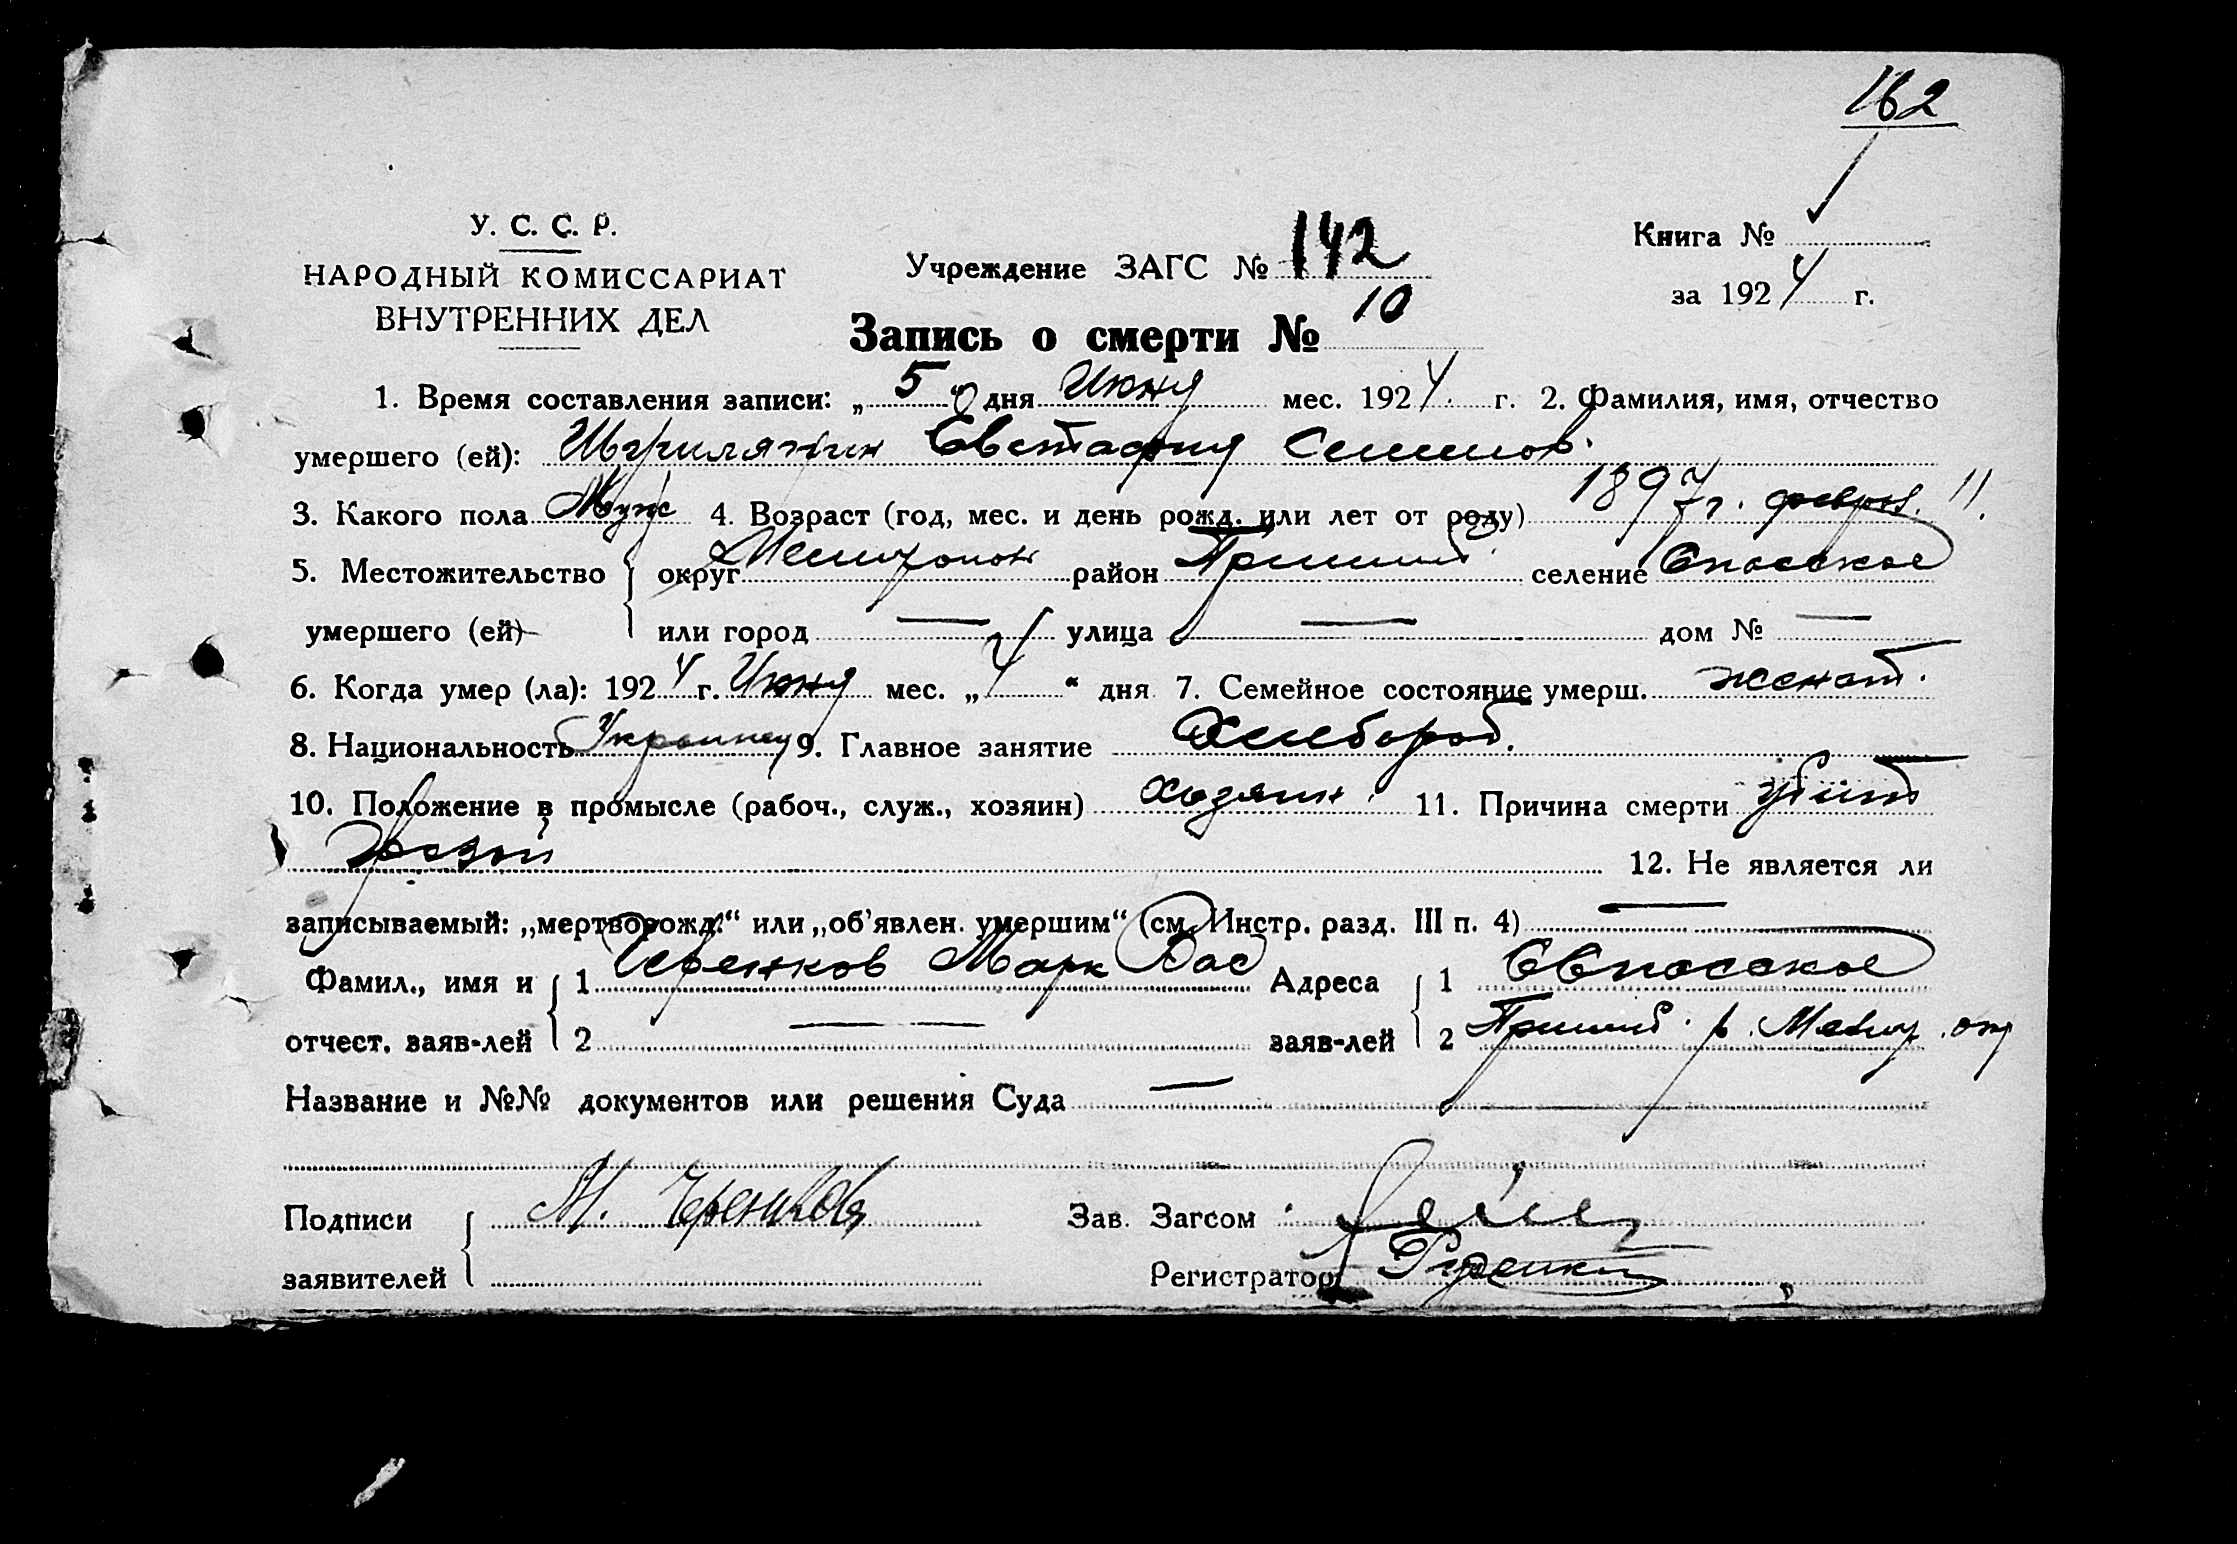 162
У. С. С. Р.
НАРОДНЫЙ КОМИССАРИАТ
ВНУТРЕННИХ ДЕЛ
Учреждение ЗАГС № 142
Книга №
за 1924 г.
Запись о смерти № 10
1. Время составления записи: „5“ дня Июня мес. 1924 г. 2. Фамилия, имя, отчество
умершего (ей): Евстафий Семенов.
3. Какого пола Муж 4. Возраст (год, мес. и день рожд. или лет от роду) 1897 г. феврал. 11.
5. Местожительство округ Мелитопол район Пришиб. селение Спасское
умершего (ей) или город — улица — дом № —
6. Когда умер (ла): 1924 г. Июня мес. „4“ дня 7. Семейное состояние умерш. женат.
8. Национальность Украинец 9. Главное занятие Хлебороб.
10. Положение в промысле (рабоч., служ., хозяин) хозяин. 11. Причина смерти убит
грозой 12. Не является ли
записываемый: „мертворожд.“ или „об'явлен. умершим“ (см. Инстр. разд. III п. 4) —
Фамил., имя и 1 Черенков Марк Вас Адреса 1 с Спасское
отчест. заяв-лей 2 — заяв-лей 2 Пришиб. р. Мелит. окр
Название и №№ документов или решения Суда —
Подписи М. Черенков Зав. Загсом
заявителей Регистратор